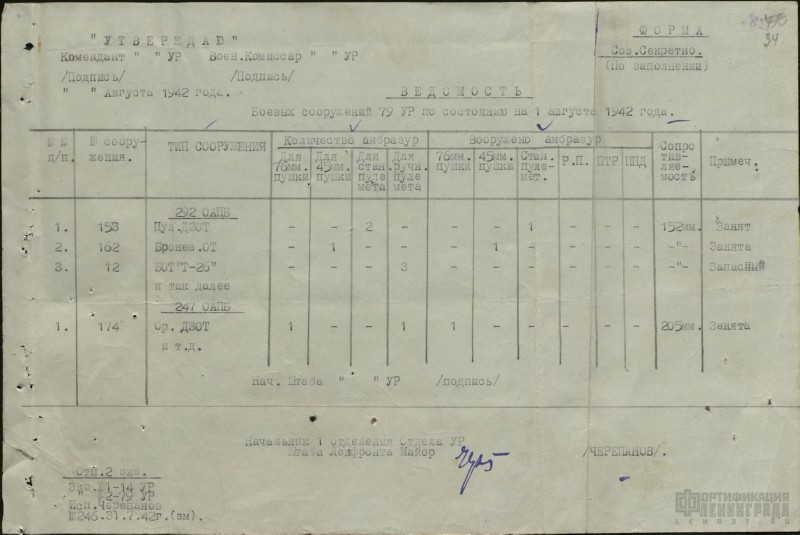 34
"УТВЕРЖДАЮ"
Комендант " " УР Воен.Комиссар " " УР
/Подпись/ /Подпись/
" " Августа 1942 года.
ФОРМА
Сов.Секретно.
(По заполнении)
ВЕДОМОСТЬ
Боевых сооружений 79 УР по состоянию на 1 августа 1942 года.
№ № п/п. № сооружения. ТИП СООРУЖЕНИЯ Количество амбразур Вооружено амбразур Сопротивляемость Примеч.
Для 76мм. пушки Для 45мм. пушки Для стан. пулемета Для ручн. пулемета 76мм. пушки 45мм. пушки Стан. пулемет. Р.П. ПТР ППД
292 ОАПБ
1. 153 Пул.ДЗОТ - - 2 - - - 1 - - - 152мм. Занят
2. 162 Бронев.ОТ - 1 - - - 1 - - - - -"- Занята
3. 12 БОТ"Т-26" - - - 3 - - - - - - -"- Запасный
и так далее
247 ОАПБ
1. 174 Ор. ДЗОТ 1 - - 1 1 - - - - - 205мм. Занята
и т.д.
Нач. Штаба " " УР /подпись/
Начальник 1 отделения Отдела УР
Штаба Ленфронта Майор /ЧЕРЕПАНОВ/.
Отп.2 экз.
Экз.№1-14 УР
" №2-79 УР
Исп.Черепанов
№246.31.7.42г.(зм).
ФОРТИФИКАЦИЯ
ЛЕНИНГРАДА